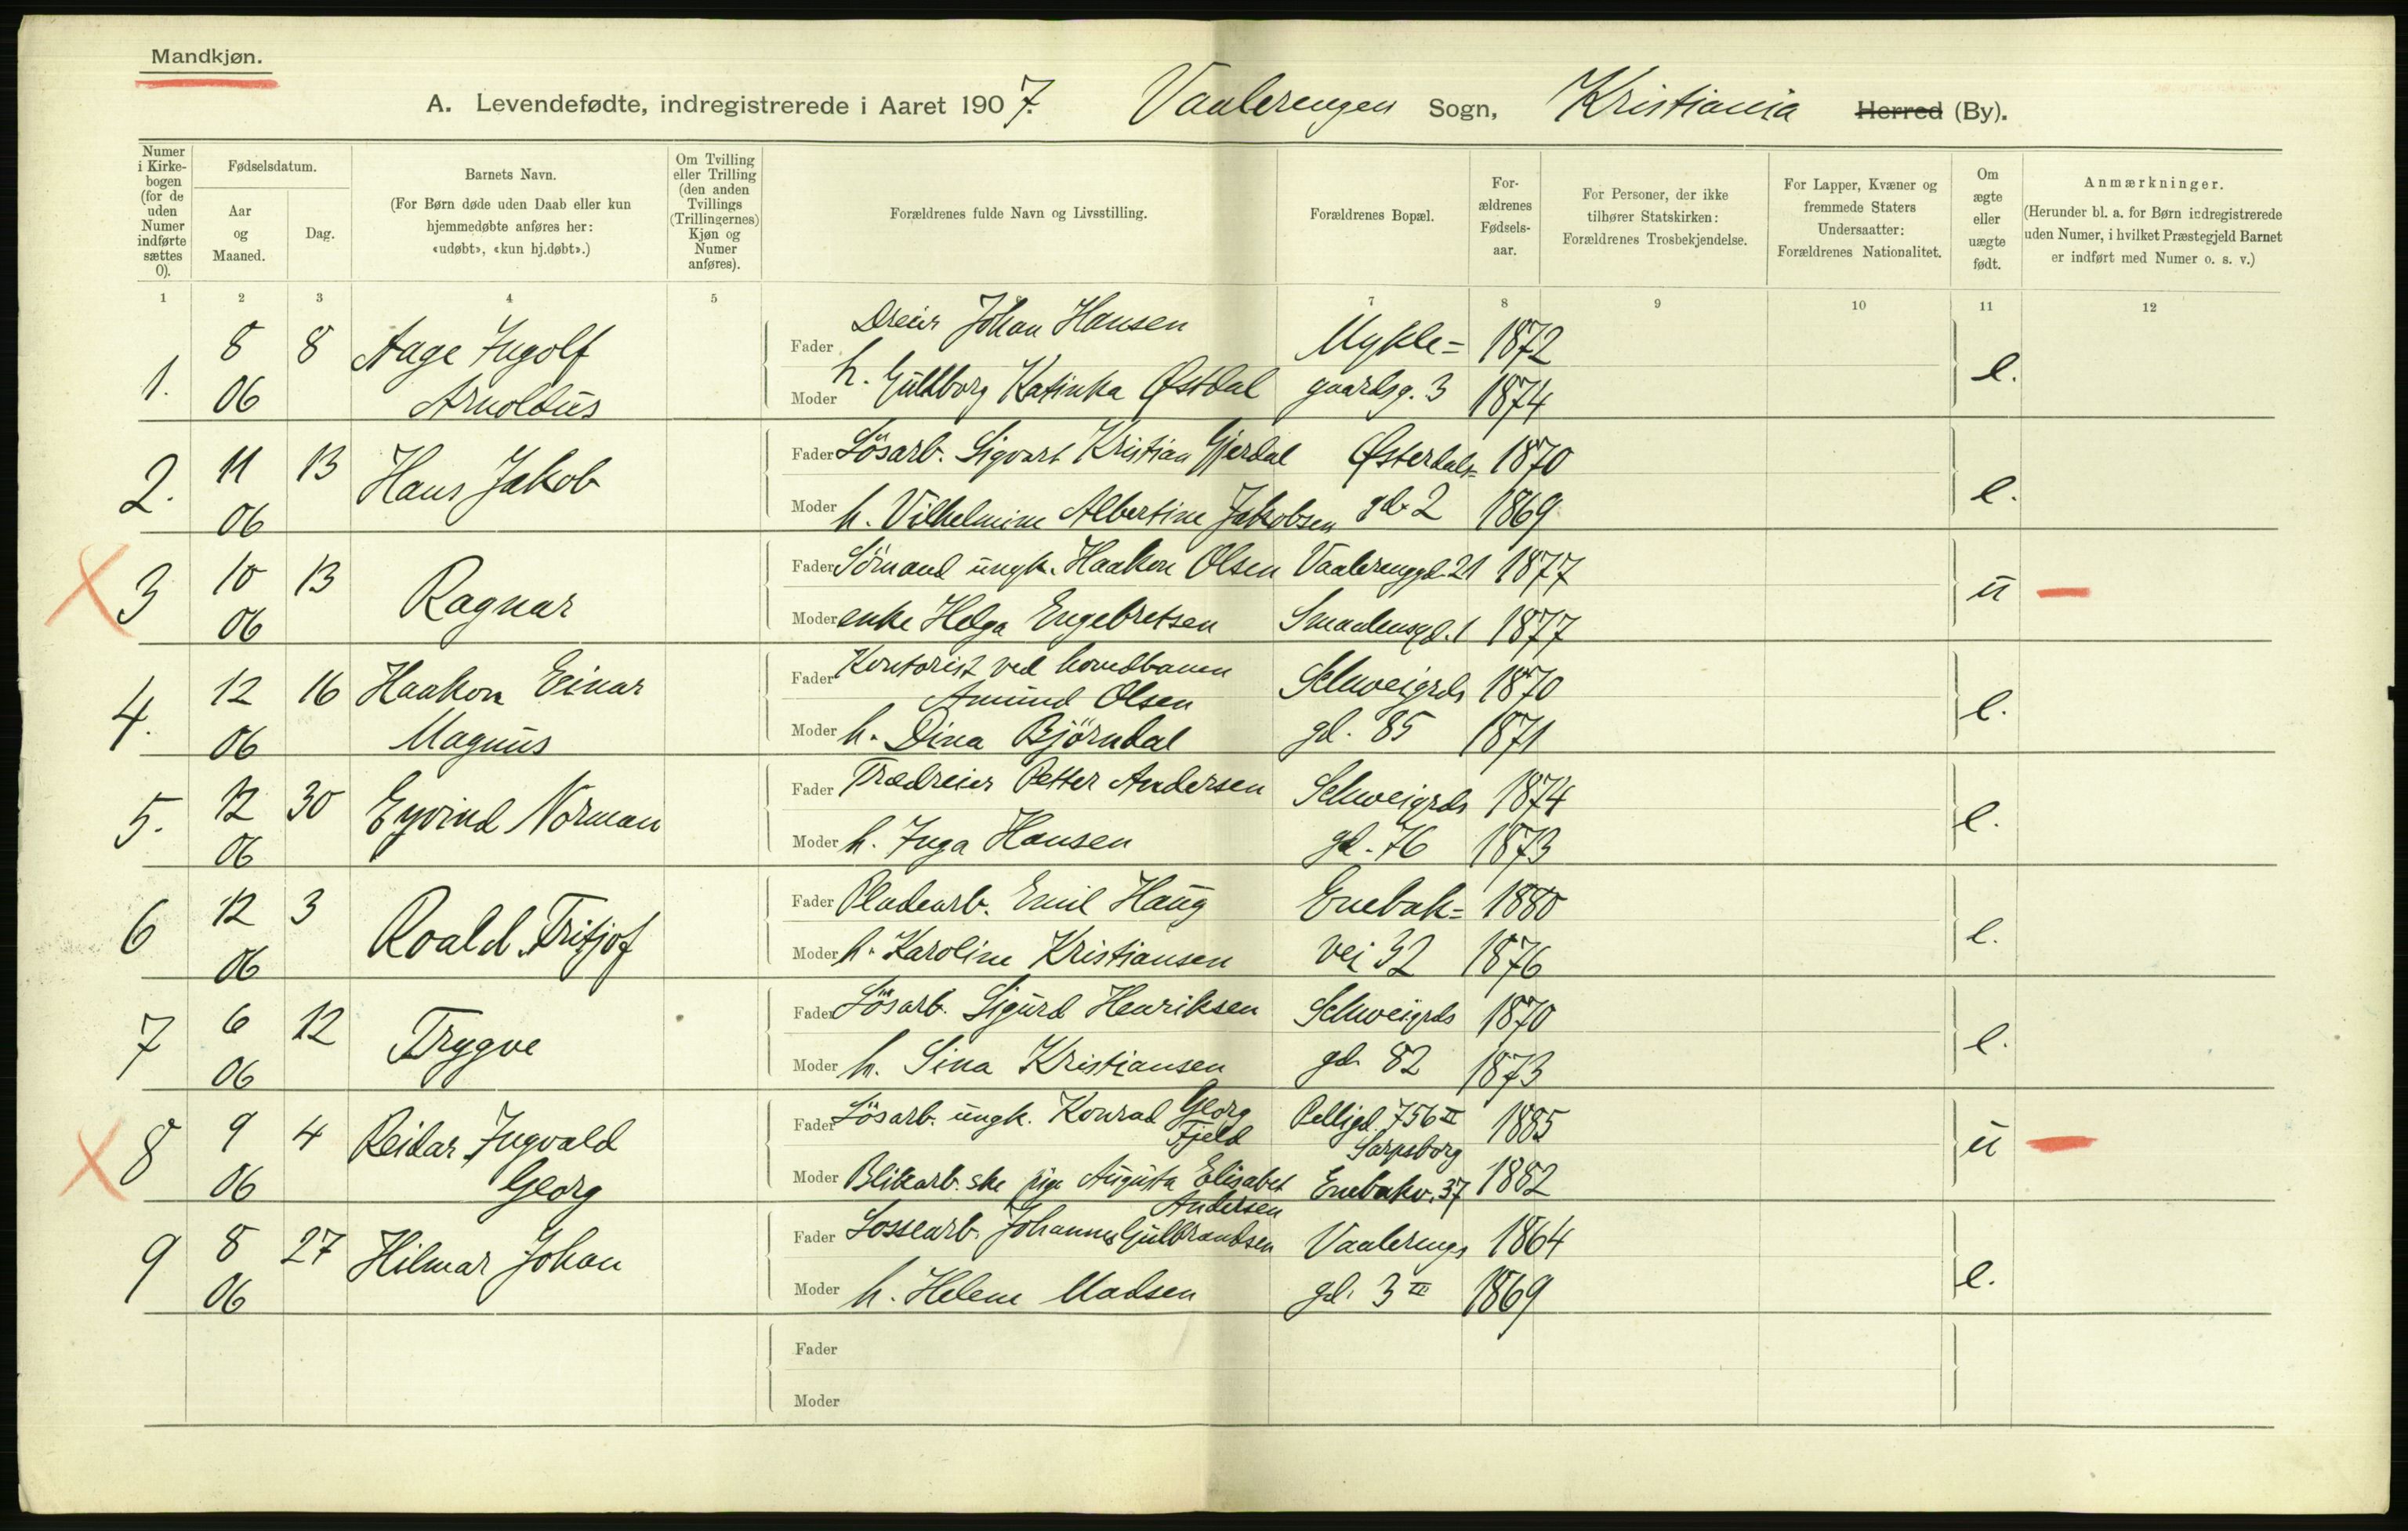 Mandkjøn.
A. Levendefødte, indregistrerede i Aaret 1907. Vaalerengen Sogn, Kristiania Herred (By).
Numer i Kirkebogen (for de uden Numer indførte sættes 0).
Fødselsdatum.
Aar og Maaned.
Dag.
Barnets Navn.
(For Børn døde uden Daab eller kun hjemmedøbte anføres her: «udøbt», «kun hj.døbt».)
Om Tvilling eller Trilling (den anden Tvillings (Trillingernes) Kjøn og Numer anføres).
Forældrenes fulde Navn og Livsstilling.
Forældrenes Bopæl.
For-ældrenes Fødsels-aar.
For Personer, der ikke tilhører Statskirken: Forældrenes Trosbekjendelse.
For Lapper, Kvæner og fremmede Staters Undersaatter: Forældrenes Nationalitet.
Om ægte eller uægte født.
Anmærkninger.
(Herunder bl. a. for Børn indregistrerede uden Numer, i hvilket Præstegjeld Barnet er indført med Numer o. s. v.)
1 2 3 4 5 7 8 9 10 11 12
1. 8 8 Aage Ingolf Fader Dreier Johan Hansen Mykle= 1872 e.
06 Arnoldus Moder h. Guldborg Katinka Østdal gaardsg. 3 1874
2. 11 13 Hans Jakob Fader Løsarb. Sigvart Kristian Gjerdal Østerdals= 1870 e.
06 Moder h. Vilhelmine Albertine Jakobsen gd. 2 1869
3 10 13 Ragnar Fader Sømand ungk. Haakon Olsen Vaalerenggd. 21 1877 u —
06 Moder enke Helga Engebretsen Smaalensgd. 1 1877
4. 12 16 Haakon Einar Fader Kontorist ved hovedbanen Schweigrds 1870 e.
Amund Olsen
06 Magnus Moder h. Dina Bjørndal gd. 85 1871
5. 12 30 Eyvind Norman Fader Trædreier Petter Andersen Schweigrds 1874 e.
06 Moder h. Inga Hansen gd. 76 1873
6 12 3 Roald Fritjof Fader Pladearb. Emil Haug Enebak= 1880 e.
06 Moder h. Karoline Kristiansen vei 32 1876
7 6 12 Trygve Fader Løsarb. Sigurd Henriksen Schweigrds 1870 e.
06 Moder h. Sina Kristiansen gd. 82 1873
8 9 4 Reidar Ingvald Fader Løsarb. ungk. Konrad Georg Fjeld Pelligd. 756 II Sarpsborg 1885 u —
06 Georg Moder Blikarb.ske pige Augusta Elisabet Andersen Enebakv. 37 1882
9 8 27 Hilmar Johan Fader Lossearb. Johannes Gulbrandsen Vaalerengs 1864 e.
06 Moder h. Helene Madsen gd. 3 III 1869
Fader
Moder